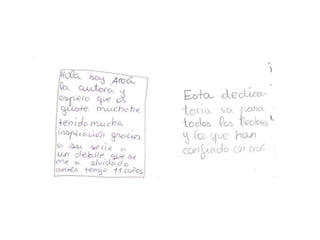 Hola soy Aroa
la autora y
espero que os
guste muchohe
tenido mucha
inspiración gracias
a su serie a
un detalle que se
me a olvidado
antes tengo 11 años
Esta dedica-
toria va para
todos los lectores
y los que han
confiado en mí.